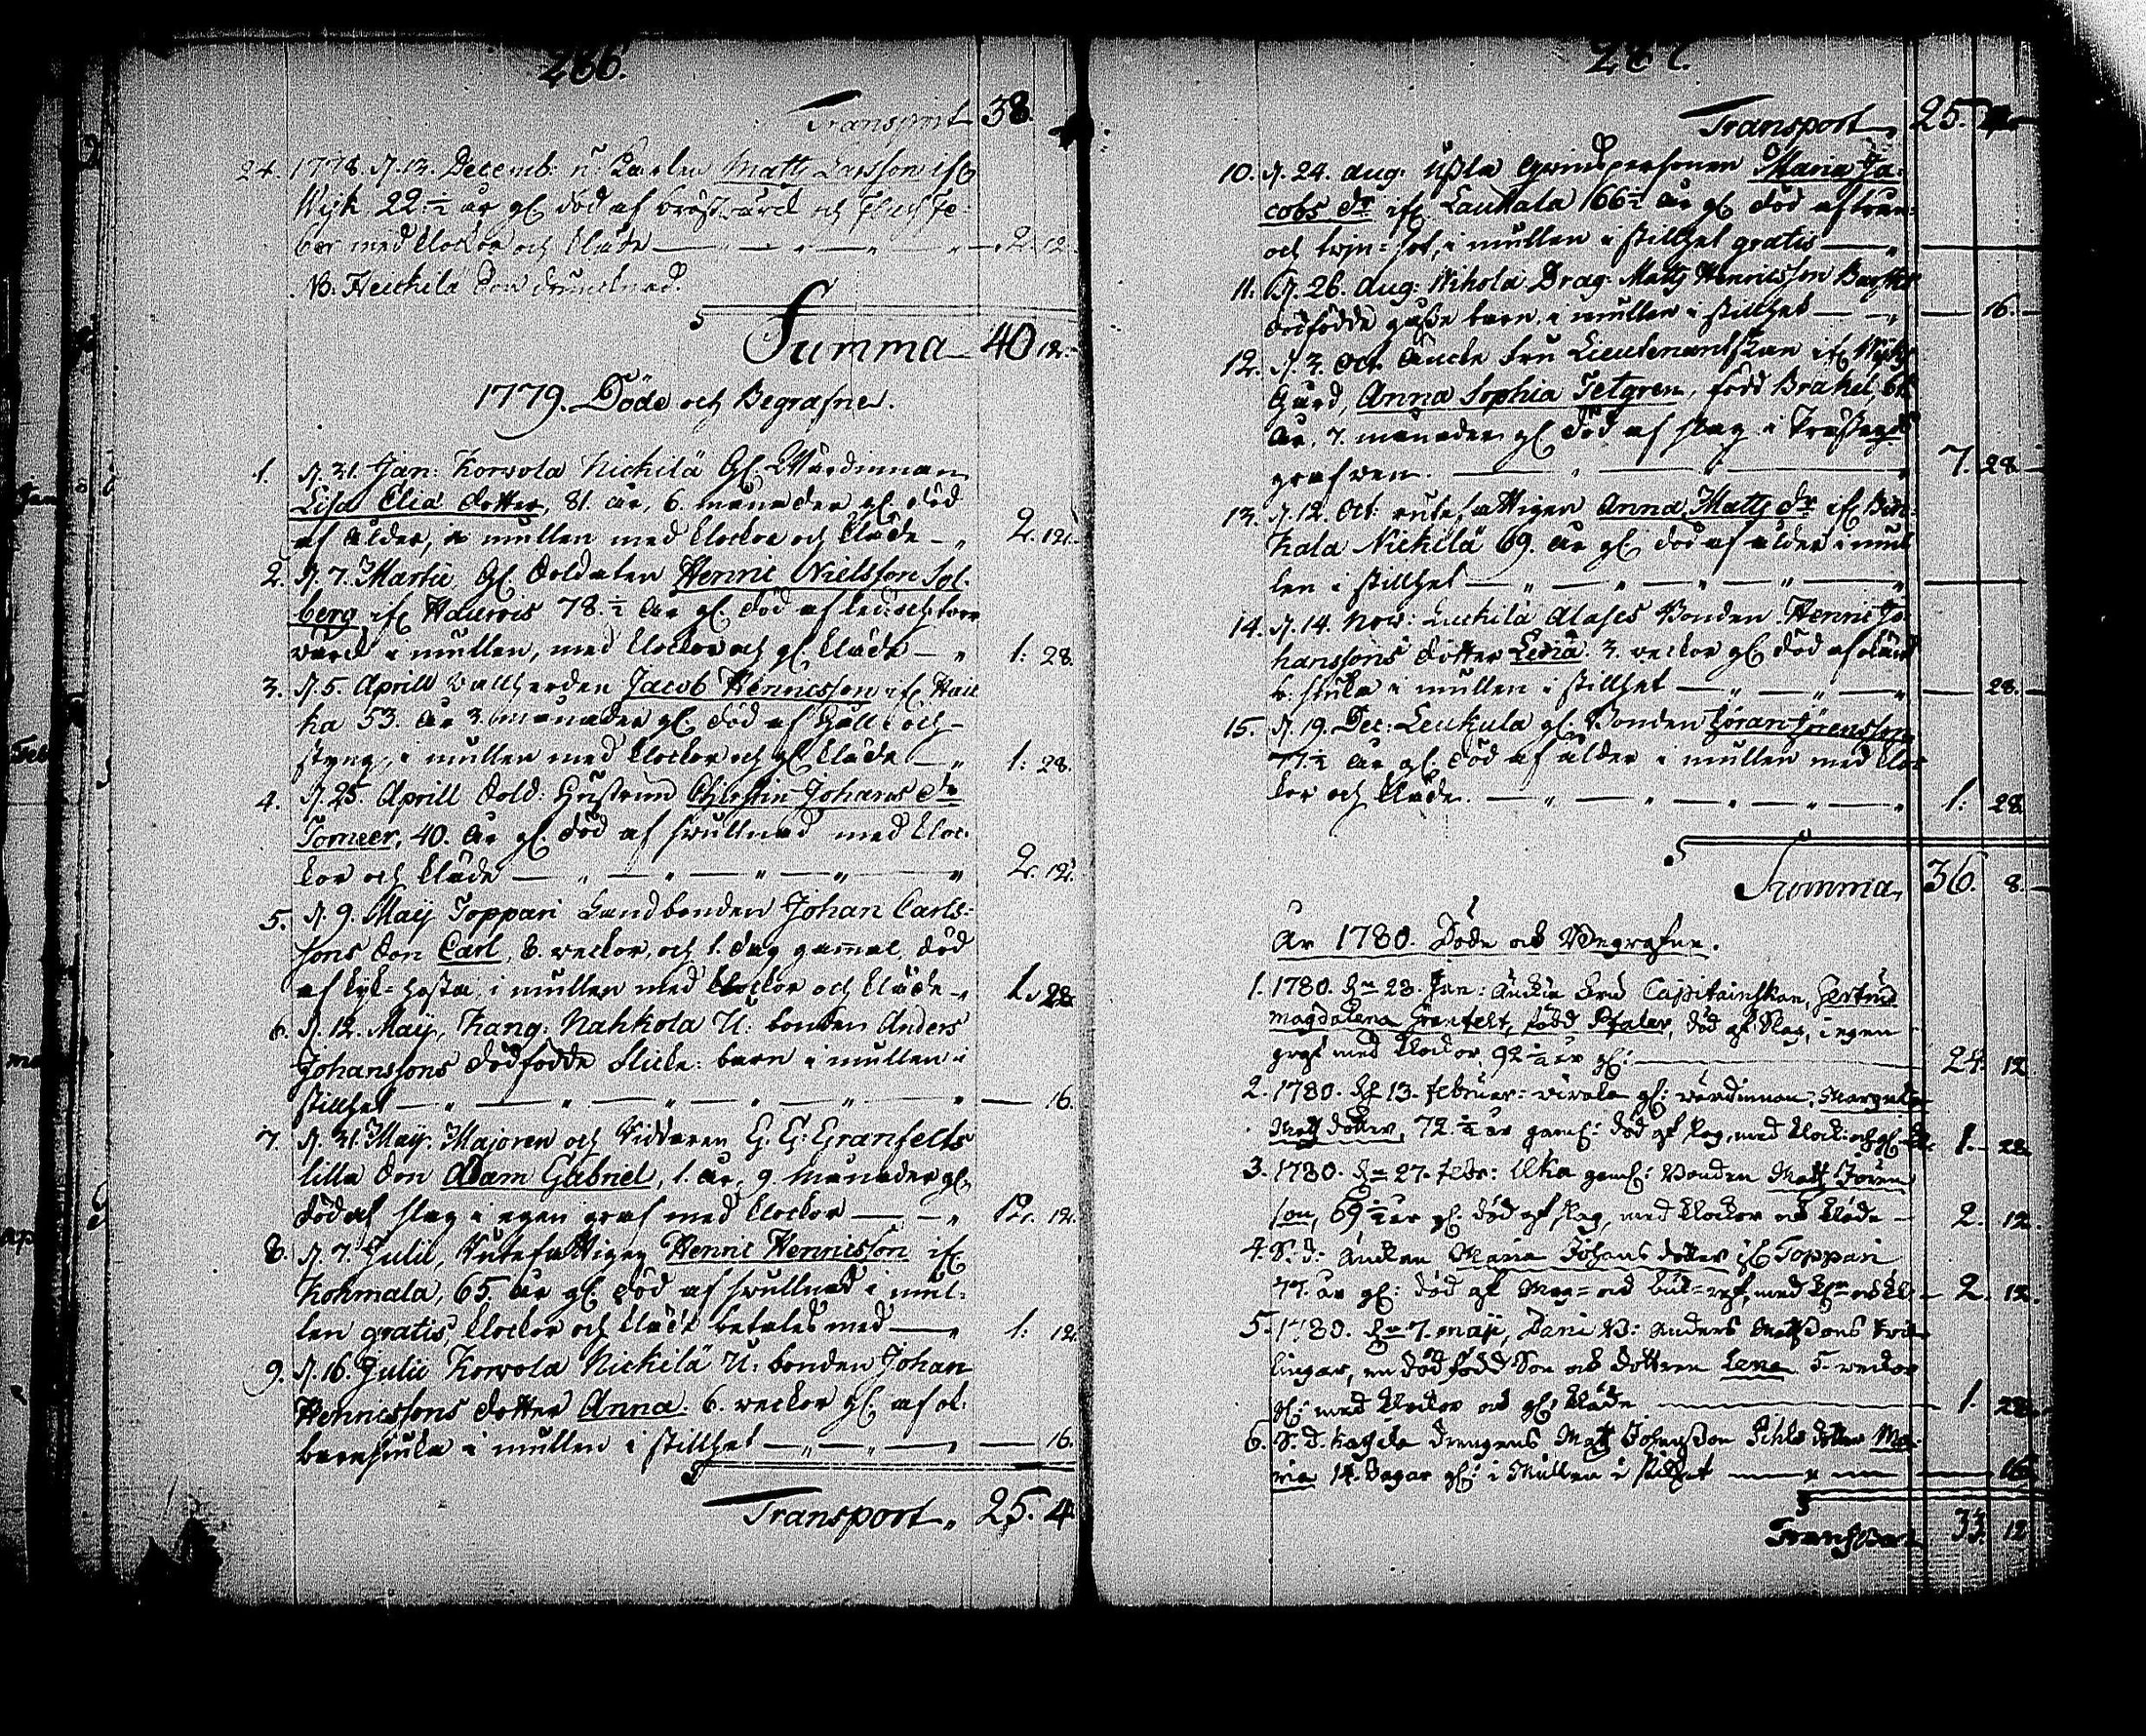 286.
Transport 38.
24. 1778. d. 13. Decemb: Matts Larsson ifr
Wijk 22 1/2 år gl. död af bröstwärck och
med klockor och kläde — 2. 12.
N.B: Heickilä Son drunknad.
Summa 40 12.
1779. Döde och Begrafne.
1. d. 31. Jan: Korvola Nickilä Gl. Wärdinnan
Lisa Elia dotter, 81. år, 6. månader gl. död
af ålder, i mullen med klockor och kläde — 2. 12.
2. d. 7. Martii Gl. Soldaten Henric Nielsson Sol-
berg ifr Haurois 78. 1/2 år gl. död af
wärck i mullen, med klockor och gl. kläde — 1: 28.
3. d. 5. Aprill Vallherden Jacob Henricsson ifr
ka 53. år 3. månader gl. död af håll och
styng, i mullen med klockor och gl. kläde — 1: 28.
4. d. 25. Aprill Sold: Hustrun Christin Johans dr
Torneer, 40. år gl. död af swullnad med kloc-
kor och kläde — 2. 12.
5. d. 9. Maij Toppari Landbonden Johan Carls-
sons Son Carl, 8. veckor, och 1. dag gamal, död
af kik-hosta, i mullen med klockor och kläde — 1. 28.
6. d. 12. Maij, Kang: Nahkola U: bonden Anders
Johanssons dödfödde flicke: barn i mullen i
stillhet — 16.
7. d. 31. Maij. Majoren och Riddaren G: G: Granfelts
lilla Son Adam Gabriel, 1. år, 9. Månader gl.
död af slag i egen graf med klockor — 12. 12.
8. d. 7. Julii, Rutefattigen Henric Henricsson ifr
Kohmala, 65. år gl. död af swullnad i mul-
len gratis, klockor och kläde betales med — 1: 12.
9. d. 16. Julii Korvola Nickilä U: bonden Johan
Henricssons dotter Anna. 6. veckor gl. af
barnsiuka i mullen i stillhet — 16.
Transport 25. 4
287.
Transport 25. 4
10. d. 24. Aug: Maria Ja-
cobs dr ifr Laukkala 66 1/2 år gl. död af
och i mullen i stillhet gratis —
11. d. 26. Aug: Nihola Drag: Matts Henricsson
dödfödde gosse barn i mullen i stillhet — 16.
12. d. 3. Oct. Äncke fru Lieutenantskan ifr Wijks
Gård, Anna Sophia Tetgren, född Brakel,
år, 7. månader gl. död af slag i
grafwen. — 7. 28
13. d. 12. Oct: rutefattigen Anna Matts dr ifr
kala Nickilä 69. år gl. död af ålder i mul
len i stillhet —
14. d. 14. Nov: Luckilä Alases Bonden Henric Jo-
hanssons dotter Lena 3. veckor gl. död af
b. siuka i mullen i stillhet — 28.
15. d. 19. Dec: Leukula gl. Bonden Jöran Jöransson
77. 1/2 år gl. död af ålder i mullen med kloc
kor och kläde. — 1: 28
Summa, 36. 8.
År 1780. Döde och Begrafne.
1. 1780. dn 23. Jan: änckie fru Capitainskan, Gertrud
Magdalena Granfelt, född Pfaler, död af Slag, i egen
graf med klockor, 92 1/2 år gl: — 24 12
2. 1780. dn 13. februar: gl: wärdinnan, Margeta
Matts dotter, 72. 1/2 år gaml: död af slag, med klock: och gl. — 1. 28
3. 1780. dn 27. febr: Ulka gaml: Bonden Matts Jören
son, 69 1/2 år gl. död af slag, med klockor och kläde — 2. 12
4 S. d. änckan Maria Johans dotter ifr Toppari
77. år gl: död af med — 2. 12.
5. 1780. dn 7. maji, Anders Matssons
lingar, en dödfödd Son och dottren Lena 5. veckor
gl: med klockor och gl. kläde — 1. 28
6. S. d. drengens Matts Johansson dotter Ma-
ria 14. dagar gl: i Mullen i stillhet — 16
33. 12